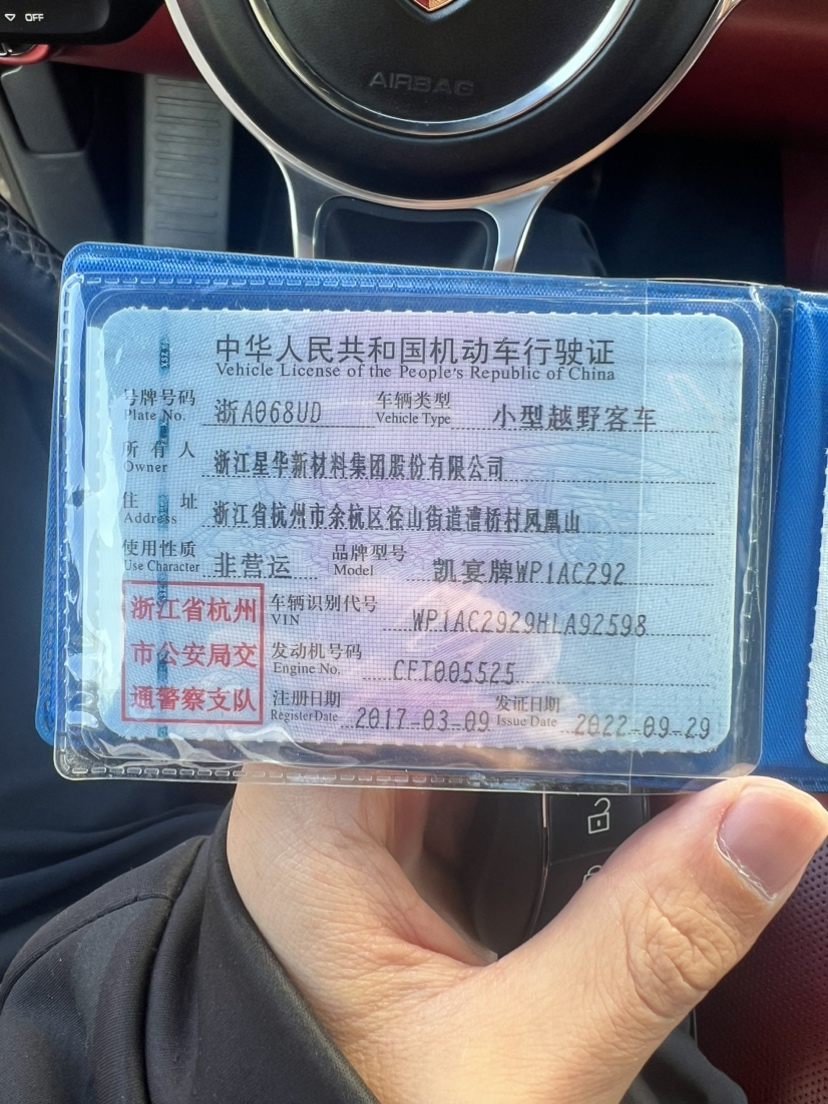 OFF
AIRBAG
中华人民共和国机动车行驶证
Vehicle License of the People's Republic of China
号牌号码 浙A068UD 车辆类型 小型越野客车
Plate No. Vehicle Type
所有人 浙江星华新材料集团股份有限公司
Owner
住址 浙江省杭州市余杭区径山街道漕桥村凤凰山
Address
使用性质 非营运 品牌型号 凯宴牌WP1AC292
Use Character Model
浙江省杭州 车辆识别代号 WP1AC2929HLA92598
VIN
市公安局交 发动机号码 CFT005525
Engine No.
通警察支队 注册日期 2017-03-09 发证日期 2022-09-29
Register Date Issue Date